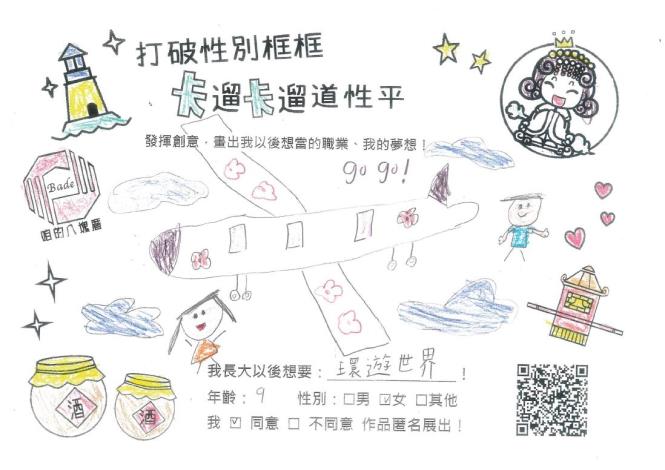 打破性別框框
卡遛卡遛道性平
發揮創意，畫出我以後想當的職業、我的夢想！
go go!
Bade
咱的八塊厝
酒
酒
我長大以後想要：環遊世界！
年齡：9 性別：□男 ☑女 □其他
我 ☑ 同意 □ 不同意 作品匿名展出！